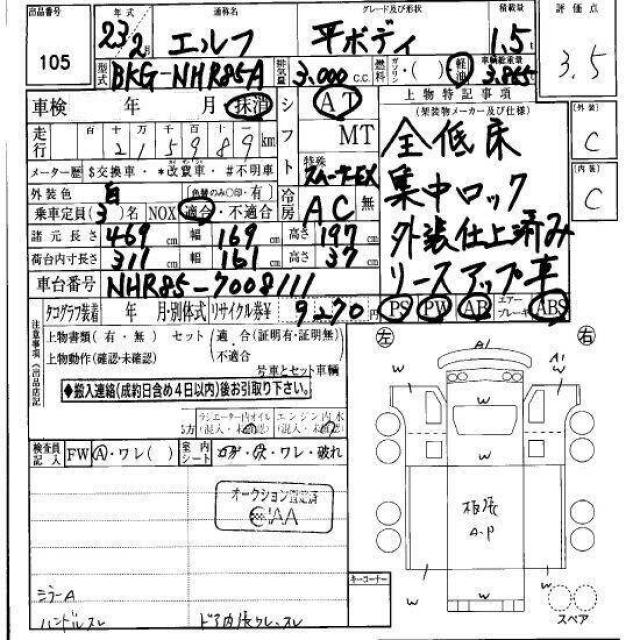 出品番号 年式 通称名 グレード及び形状 積載量 評価点
105 23 2月 エルフ 平ボディ 1.5t 3.5
型式 BKG-NHR85A 排気量 3,000 C.C. 燃料 ガソリン・軽油 車輌総重量 3,865
車検 年 月・抹消 シフト AT 上物特記事項
MT (架装物メーカー及び仕様) [外装] C
走行 百 十 万 千 百 十 一
215989 km
特殊 スムーサーEX 全低床
メーター歴 $交換車・*改竄車・#不明車 集中ロック [内装] C
外装色 白 (色替のみ○印・有) 冷房 AC 無
乗車定員(3)名 NOX 適合・不適合 外装仕上済み
諸元長さ 469cm 幅 169cm 高さ 197cm
荷台内寸長さ 311cm 幅 161cm 高さ 37cm リースアップ車
車台番号 NHR85-7008111 PS PW AB エアーブレーキ ABS
タコグラフ装着 年 月・別体式 リサイクル券¥ 9270円
注意事項
上物書類(有・無) セット 適合(証明有・証明無)
上物動作(確認・未確認) 不適合
号車とセット車輌
◆搬入連絡(成約日含め4日以内)後お引取り下さい。
ラジエーター内オイル エンジン内水
(混入・未確認) (混入・未確認)
検査員記入 FW A・ワレ( ) 室内シート コゲ・穴・ワレ・破れ
オークション
AA
ミラーA
ハンドルスレ ドア内張クレ、スレ
キーコーナー
左 右
A1
A1
W W W
W
板張
A・P
W
W W
スペア